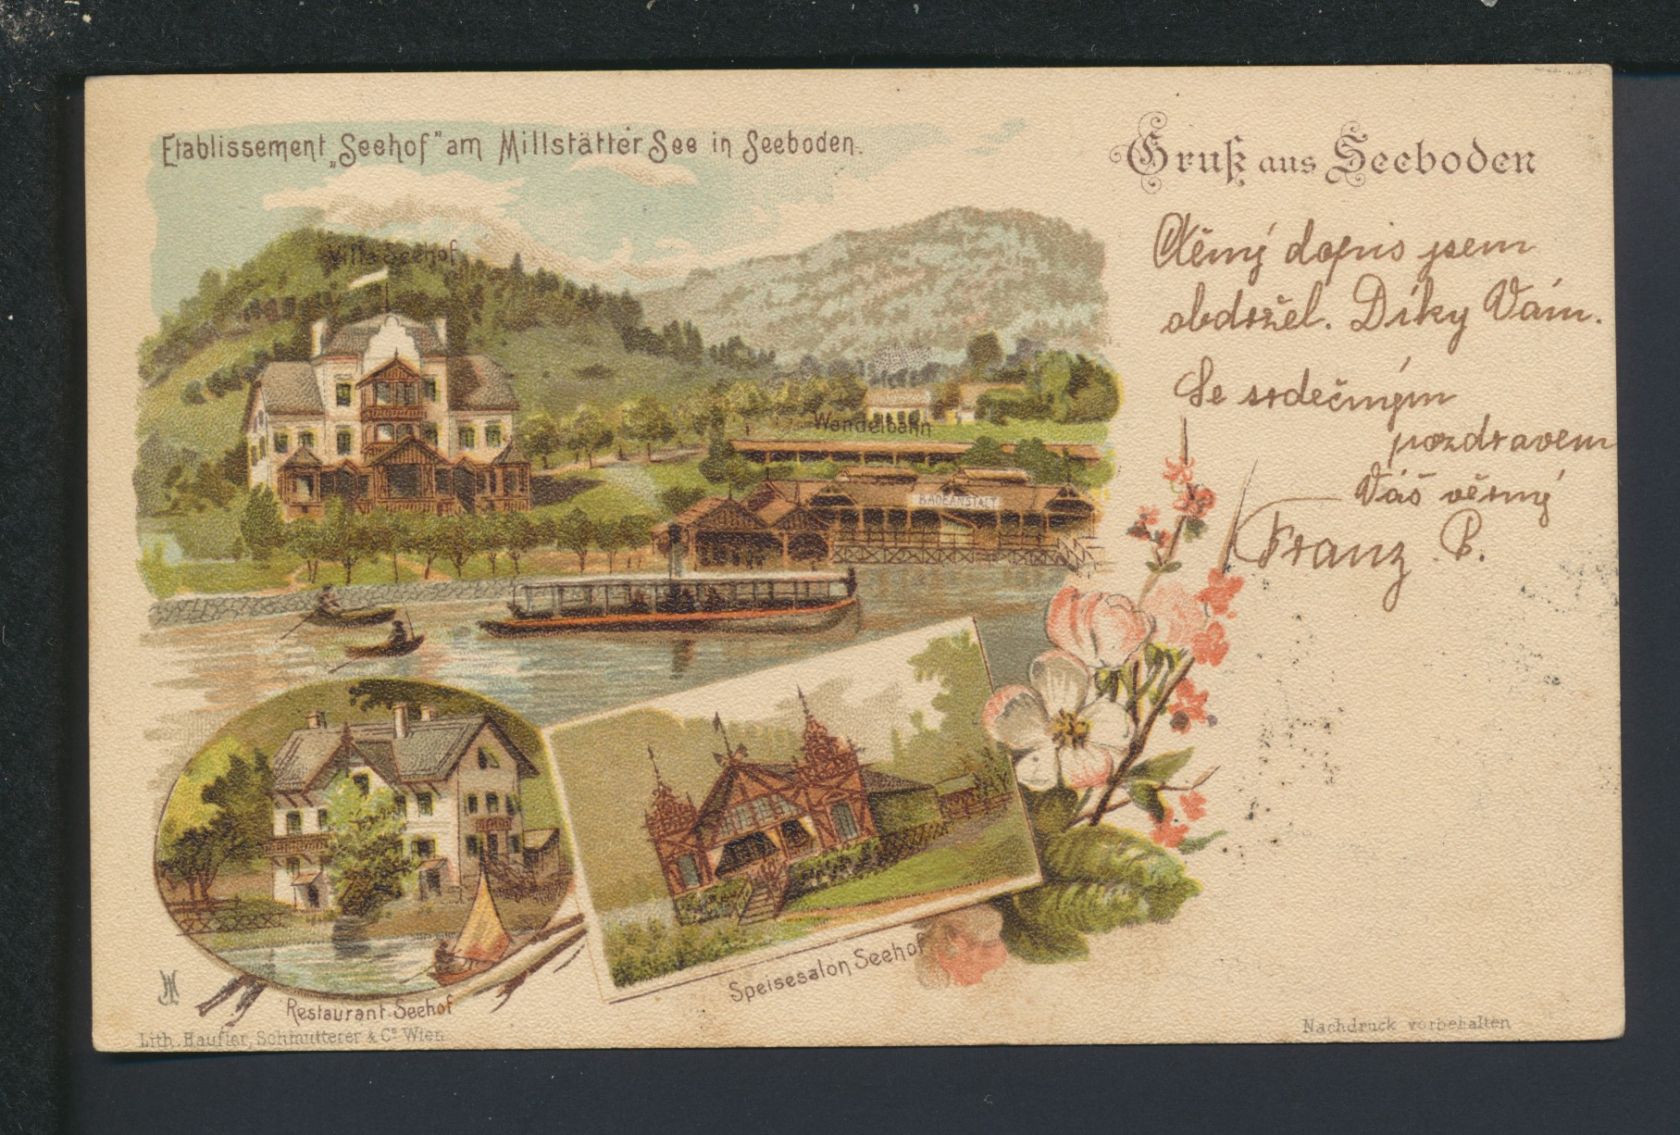 Etablissement „Seehof" am Millstätter See in Seeboden.
Gruß aus Seeboden
Ctěný dopis jsem
obdržel. Díky Vám.
Se srdečným
pozdravem
Váš věrný
Franz B.
Villa Seehof
Wandelbahn
BADEANSTALT
Restaurant Seehof
Speisesalon Seehof
Lith. Haufler, Schmutterer & Co Wien
Nachdruck vorbehalten